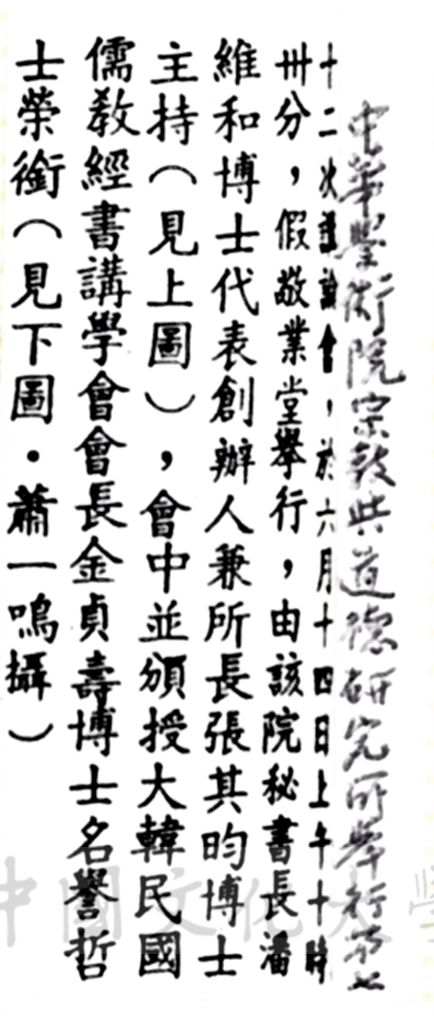 中華學術院宗教與道德研究所舉行第七
十二次講論會，於六月十四日上午十時
卅分，假敬業堂舉行，由該院秘書長潘
維和博士代表創辦人兼所長張其昀博士
主持（見上圖），會中並頒授大韓民國
儒教經書講學會會長金貞壽博士名譽哲
士榮銜（見下圖．蕭一鳴攝）
中國文化大學